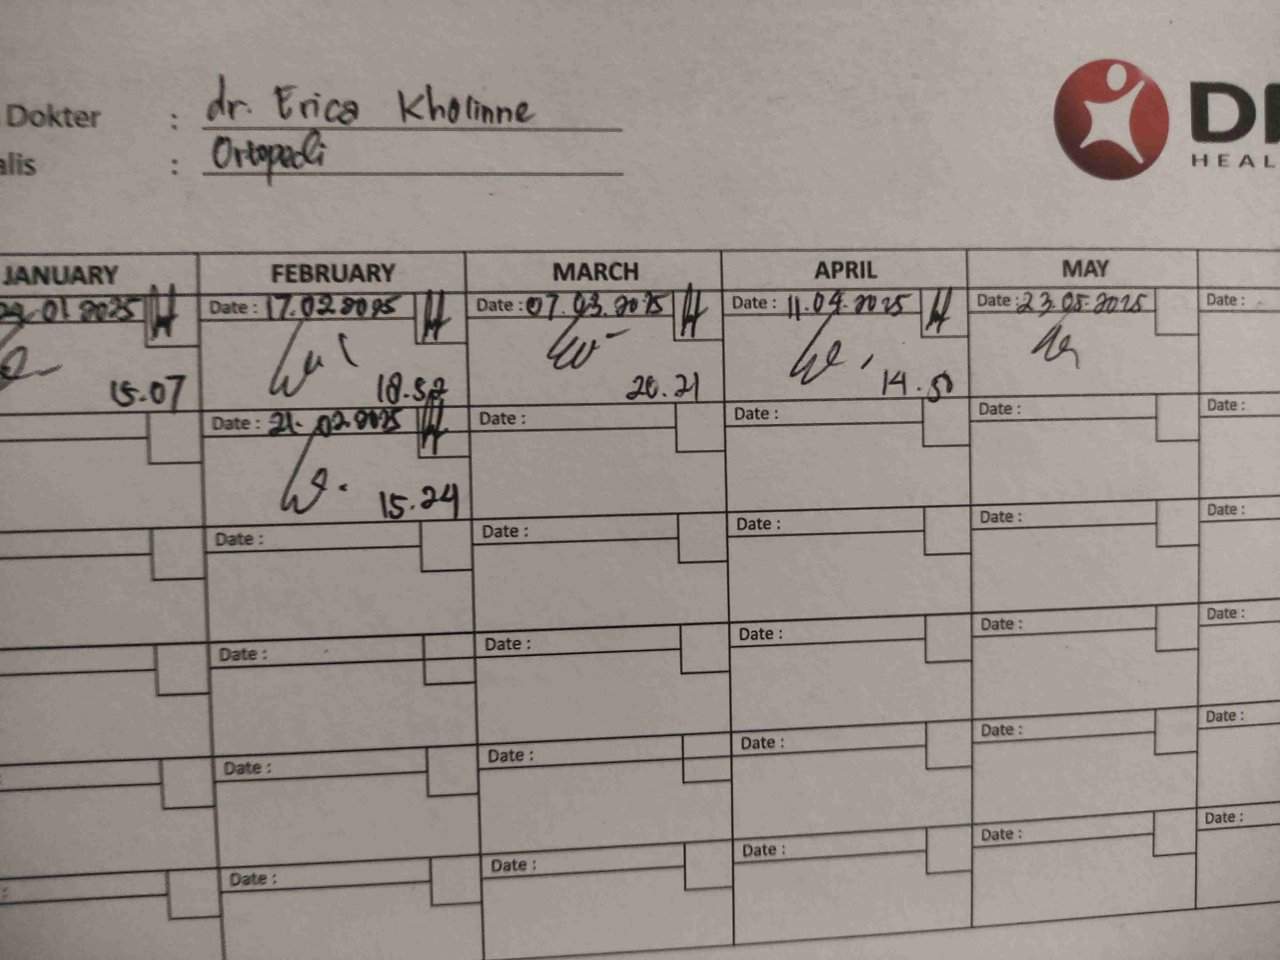 Dokter : dr. Erica Kholinne
alis : Ortopedi
HEAL
JANUARY FEBRUARY MARCH APRIL MAY
01 2025 Date : 17.02.2025 Date : 07.03.2025 Date : 11.04.2025 Date : 23.05.2025 Date :
15.07 18.52 20.21 14.50
Date : 21.02.2025 Date : Date : Date : Date :
15.24
Date : Date : Date : Date : Date :
Date : Date : Date : Date : Date :
: Date : Date : Date : Date : Date :
: Date : Date : Date : Date : Date :